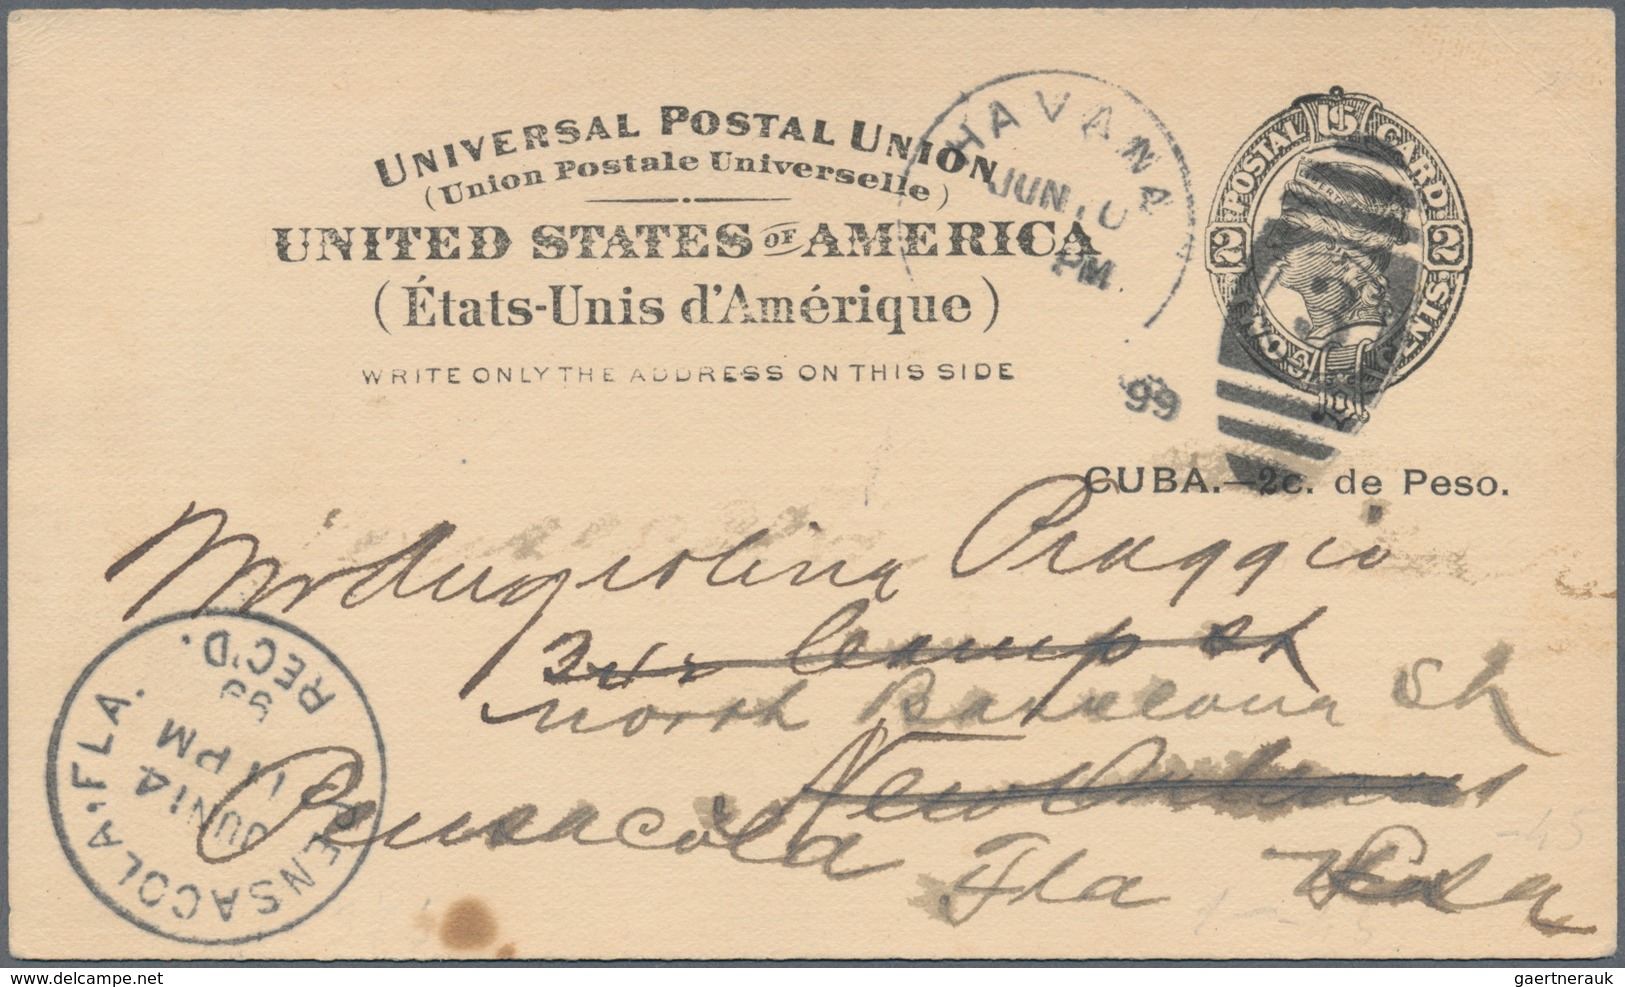 UNIVERSAL POSTAL UNION
(Union Postale Universelle)
UNITED STATES OF AMERICA
(États-Unis d'Amérique)
WRITE ONLY THE ADDRESS ON THIS SIDE
HAVANA
JUN
PM
99
POSTAL IS CARD
2 2
CENTS
CUBA.—2c. de Peso.
Praggio
Camp St
North Barcelona St
New Orleans
Pensacola Fla
PENSACOLA, FLA.
JUN 14
11 PM
99
REC'D.
-45
gaertnerauk
www.delcampe.net